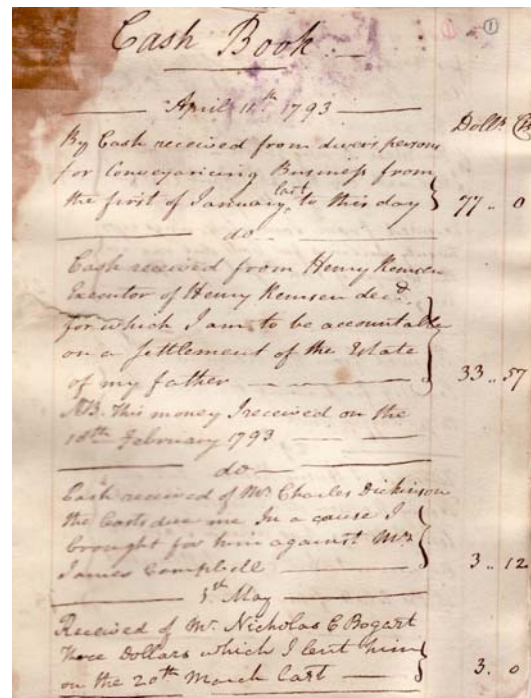 Cash Book
①
April 11th 1793
Dolls. Cts
By Cash received from divers persons
for Conveyancing Business from
the first of January last to this day 77 .. 0
do
Cash received from Henry Remsen
Executor of Henry Remsen decd.
for which I am to be accountable
on a settlement of the Estate
of my father 33 .. 57
NB. This money I received on the
18th February 1793
do
Cash received of Mr. Charles Dickinson
the Costs due me In a cause I
brought for him against Mr.
James Campbell 3 .. 12
May
Received of Mr. Nicholas C Bogart
three Dollars which I lent him
on the 20th March last 3 . 0